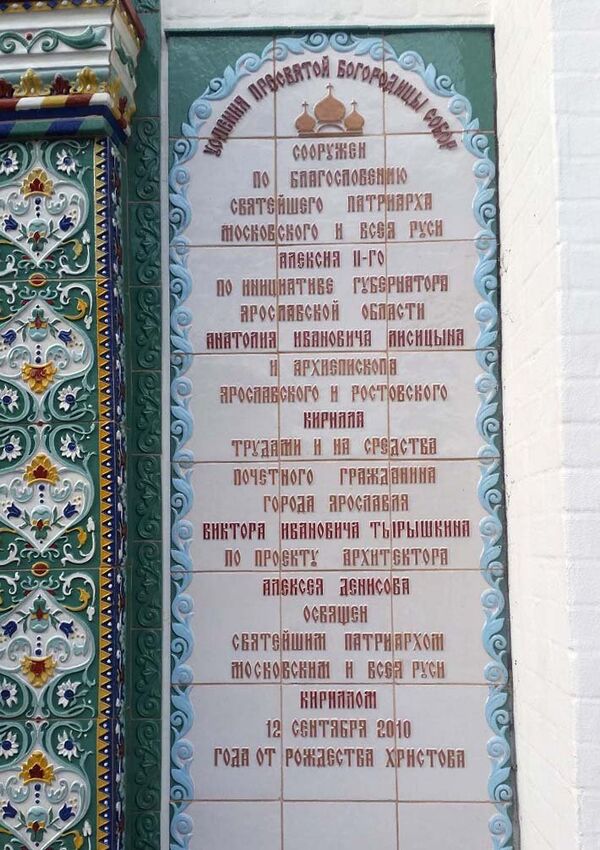 УСПЕНИЯ ПРЕСВЯТОЙ БОГОРОДИЦЫ СОБОР
СООРУЖЕН
ПО БЛАГОСЛОВЕНИЮ
СВЯТЕЙШЕГО ПАТРИАРХА
МОСКОВСКОГО И ВСЕЯ РУСИ
АЛЕКСИЯ II-ГО
ПО ИНИЦИАТИВЕ ГУБЕРНАТОРА
ЯРОСЛАВСКОЙ ОБЛАСТИ
АНАТОЛИЯ ИВАНОВИЧА ЛИСИЦЫНА
И АРХИЕПИСКОПА
ЯРОСЛАВСКОГО И РОСТОВСКОГО
КИРИЛЛА
ТРУДАМИ И НА СРЕДСТВА
ПОЧЕТНОГО ГРАЖДАНИНА
ГОРОДА ЯРОСЛАВЛЯ
ВИКТОРА ИВАНОВИЧА ТЫРЫШКИНА
ПО ПРОЕКТУ АРХИТЕКТОРА
АЛЕКСЕЯ ДЕНИСОВА
ОСВЯЩЕН
СВЯТЕЙШИМ ПАТРИАРХОМ
МОСКОВСКИМ И ВСЕЯ РУСИ
КИРИЛЛОМ
12 СЕНТЯБРЯ 2010
ГОДА ОТ РОЖДЕСТВА ХРИСТОВА